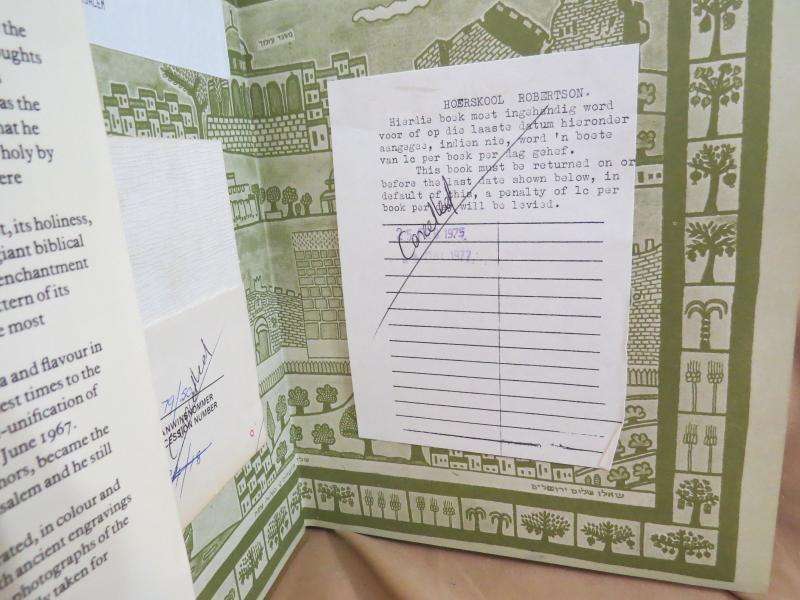 the
oughts
as the
hat he
holy by
ere
t, its holiness,
giant biblical
enchantment
ttern of its
e most
a and flavour in
est times to the
-unification of
June 1967.
nors, became the
salem and he still
rated, in colour and
h ancient engravings
photographs of the
ly taken for
ANWINSNOMMER
CESSION NUMBER
HOERSKOOL ROBERTSON.
Hierdie boek moet ingehandig word
voor of op die laaste datum hieronder
aangegee, indien nie, word 'n boete
van 1c per boek per dag gehef.
This book must be returned on or
before the last date shown below, in
default of this, a penalty of 1c per
book per day will be levied.
Cancelled
1975
1977
שאלו שלום ירושלים